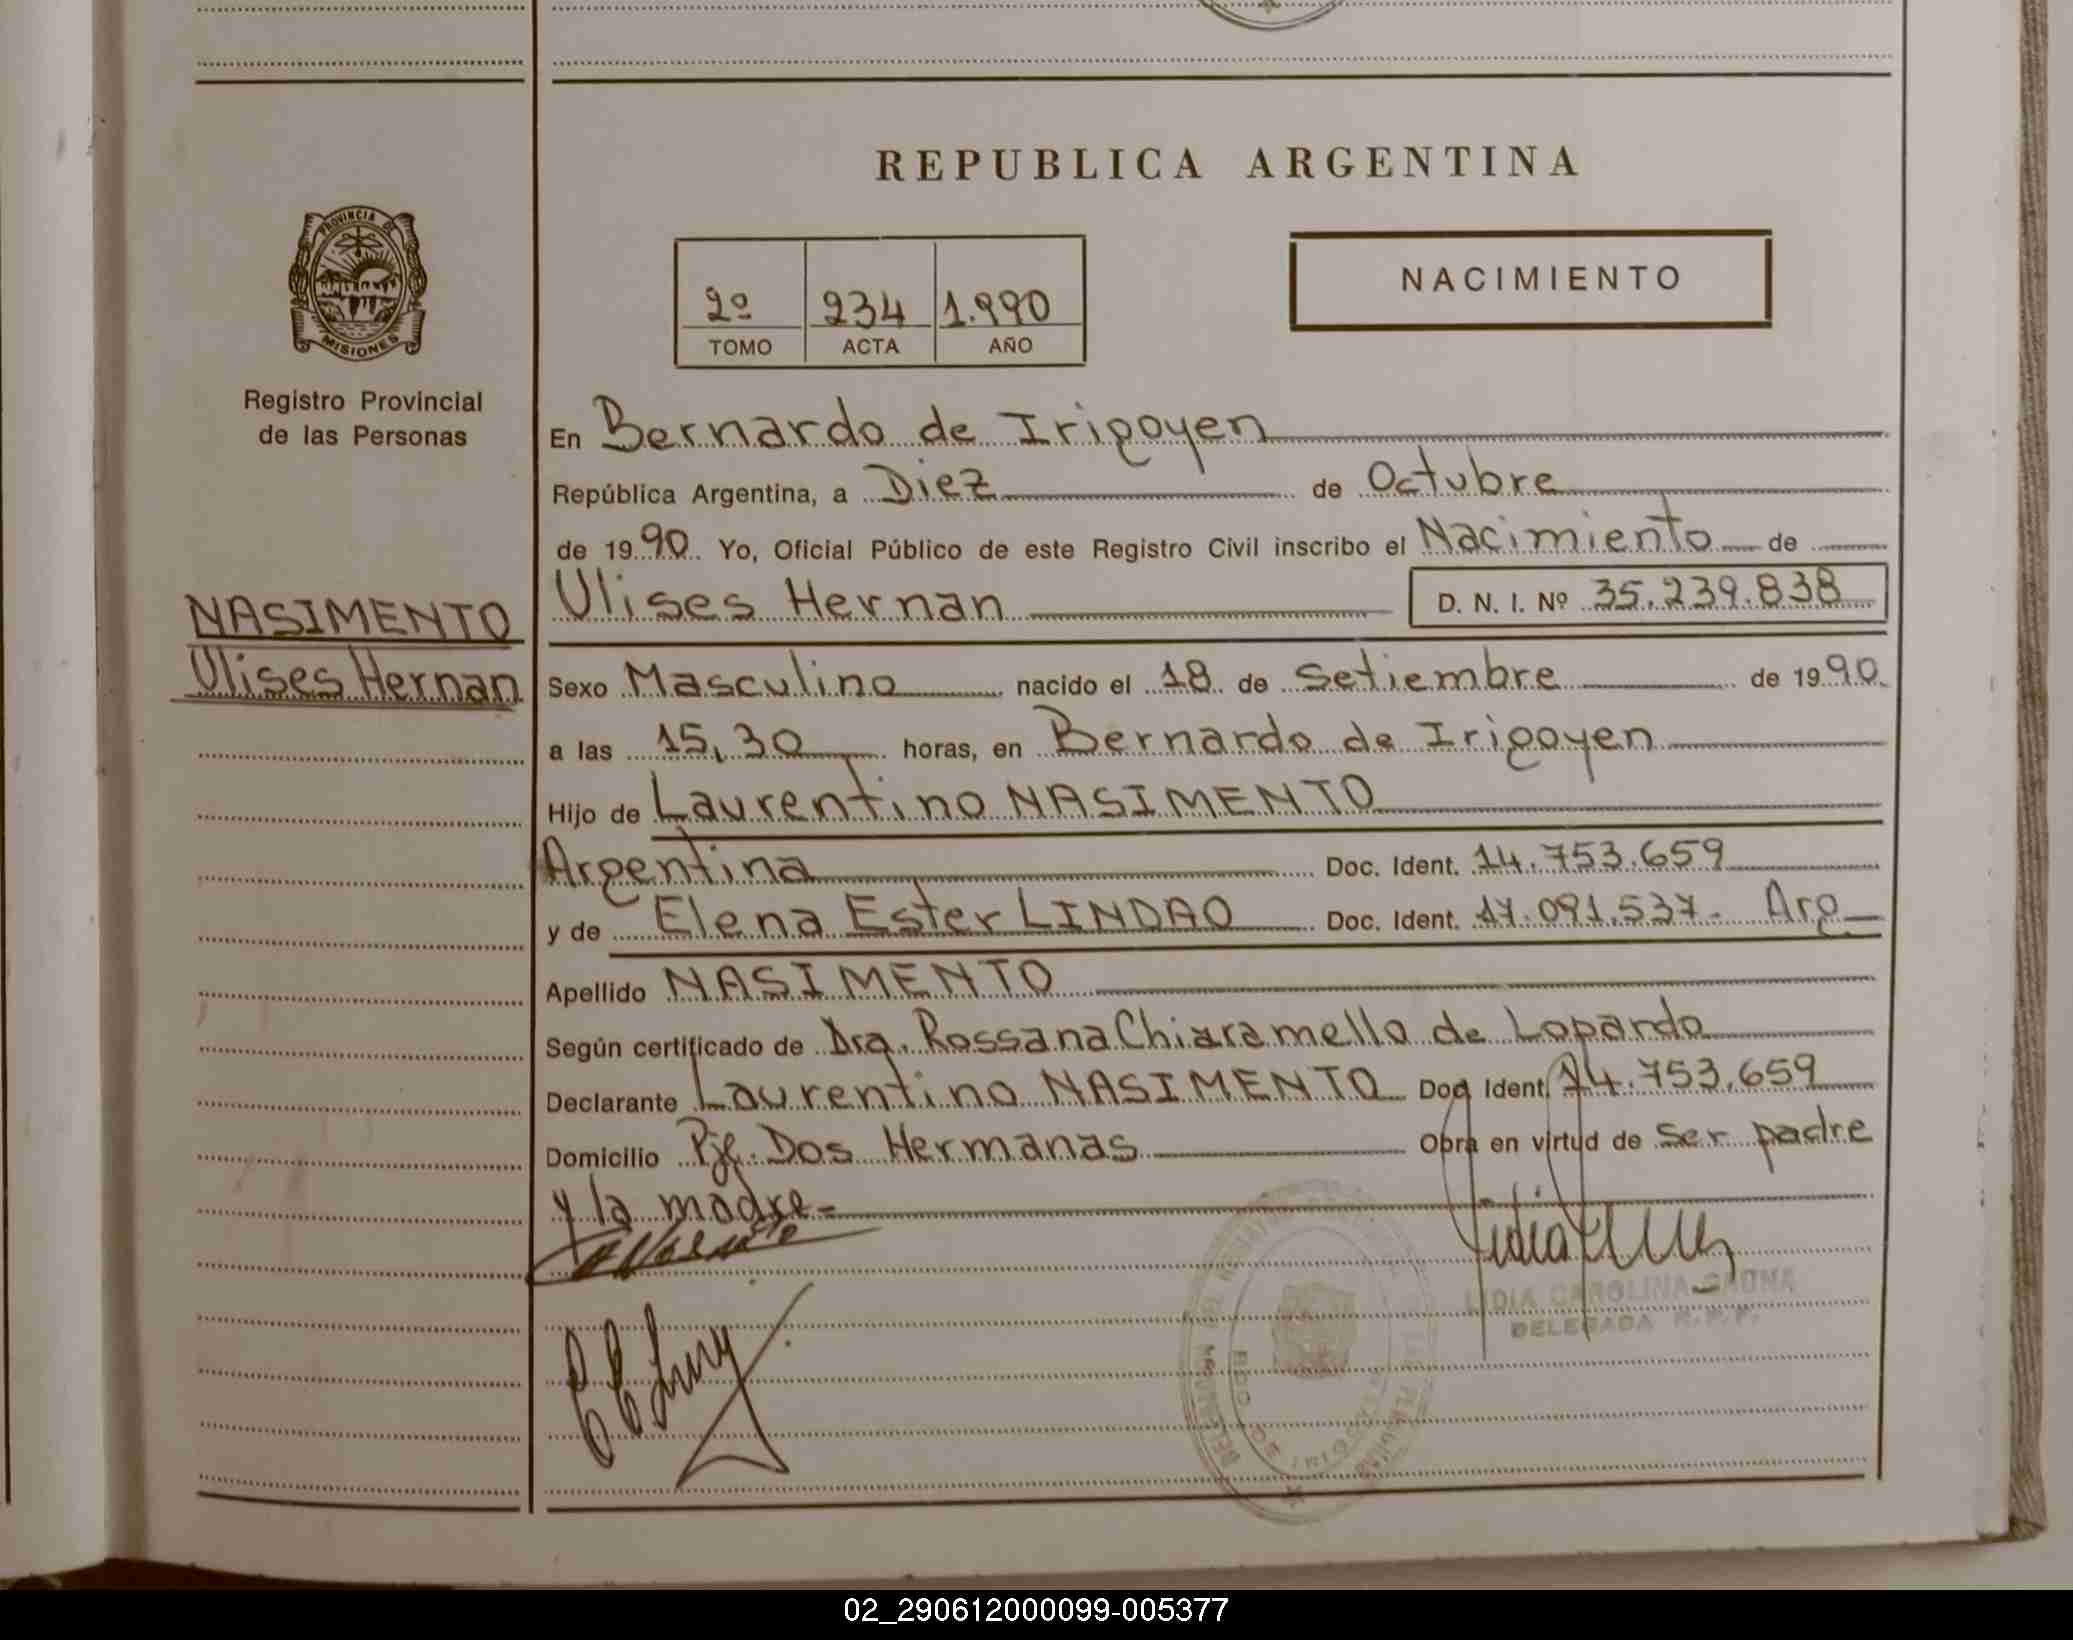 REPUBLICA ARGENTINA
PROVINCIA DE
MISIONES
Registro Provincial
de las Personas
2º 234 1.990
TOMO ACTA AÑO
NACIMIENTO
En Bernardo de Irigoyen
República Argentina, a Diez de Octubre
de 1990. Yo, Oficial Público de este Registro Civil inscribo el Nacimiento de
NASIMENTO
Ulises Hernan
Ulises Hernan D. N. I. Nº 35.239.838
Sexo Masculino nacido el 18 de Setiembre de 1990.
a las 15,30 horas, en Bernardo de Irigoyen
Hijo de Laurentino NASIMENTO
Argentina Doc. Ident. 14.753.659
y de Elena Ester LINDAO Doc. Ident. 17.091.537- Arg
Apellido NASIMENTO
Según certificado de Dra. Rossana Chiaramello de Lopardo
Declarante Laurentino NASIMENTO Doc Ident. 14.753.659
Domicilio Pje. Dos Hermanas Obra en virtud de ser padre
y la madre-
LIDIA CAROLINA GAONA
DELEGADA R.P.P.
02_290612000099-005377